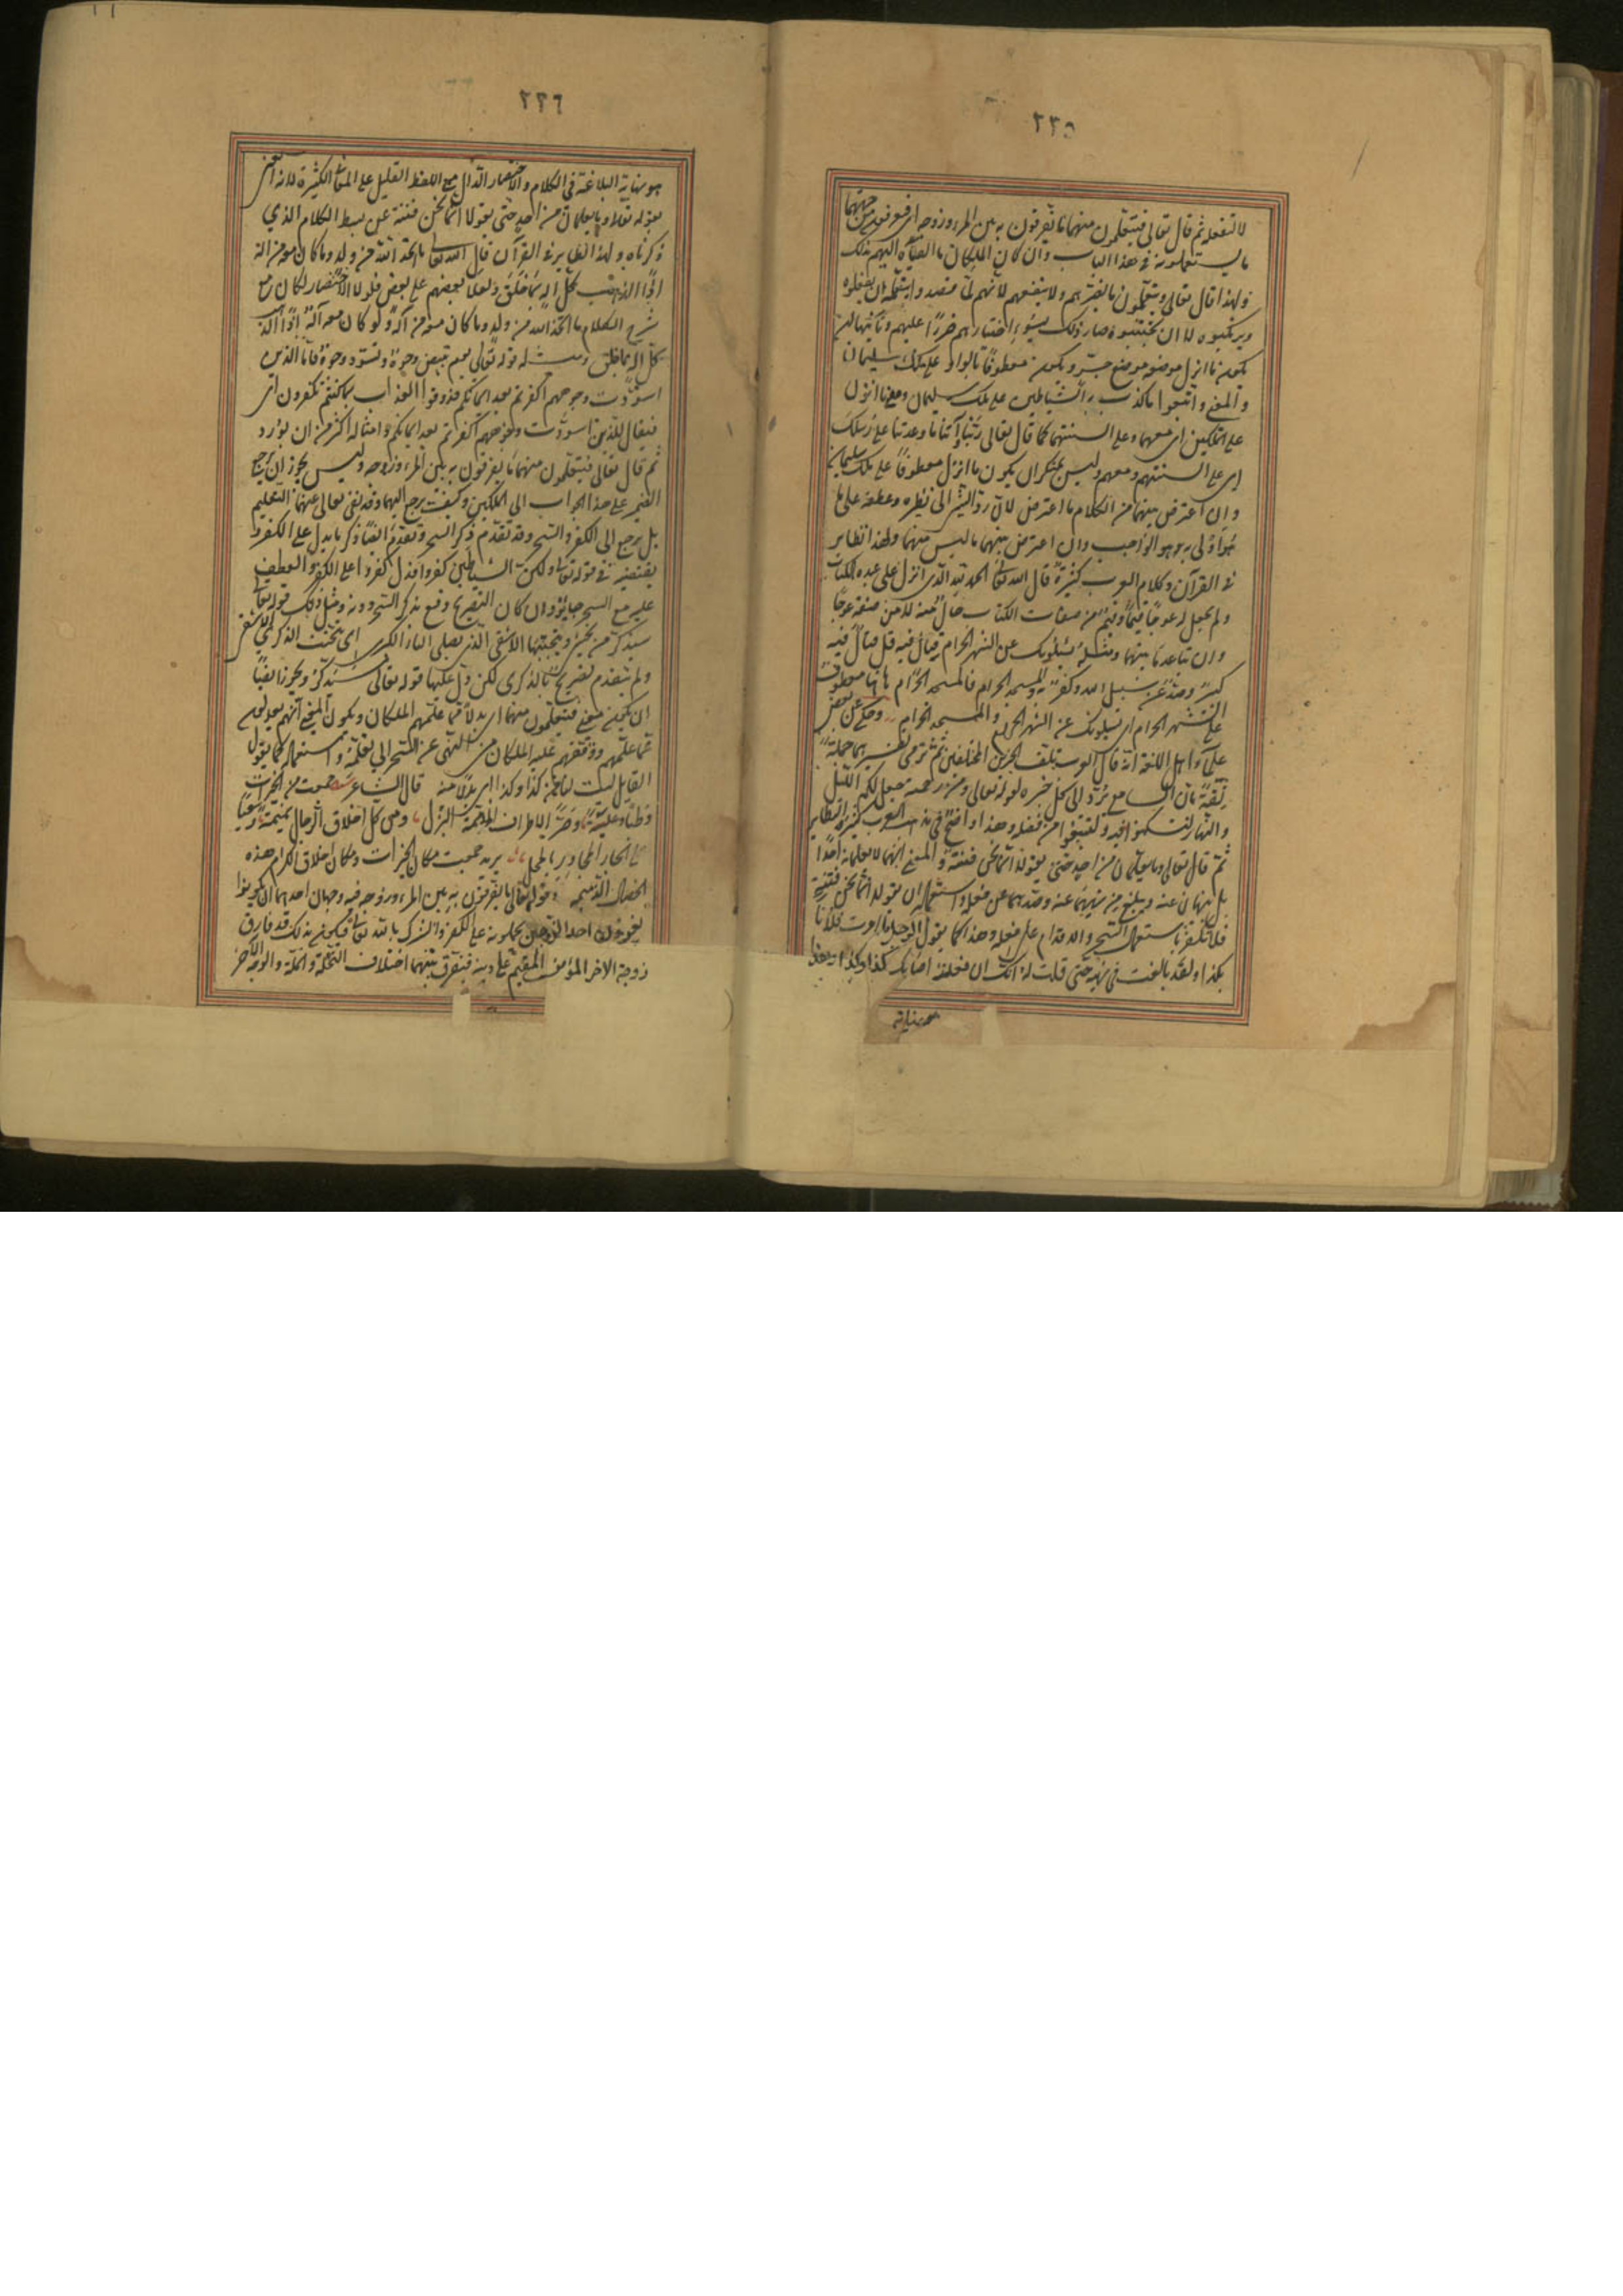 ٢٢٥
لا لتفعله ثم قال تعالى فيتعلمون منهما ما يفرقون به بين المرء وزوجه اي فيعرفون من جهتهما
ما يستعملونه في هذا الباب وان كان الملكان ما القياه اليهم لذلك
ولهذا قال تعالى ويتعلمون ما يضرهم ولا ينفعهم لانهم لما قصدوا بتعلمه ان يفعلوه
ويرتكبوه لا ان يجتنبوه صار ذلك بسوء اختيارهم ضررا عليهم وثالثها ان
يكون ما انزل موضعه موضع جر ويكون معطوفا بالواو على ملك سليمان
والمعنى واتبعوا ما كذب به الشياطين على ملك سليمان وعلى ما انزل
على الملكين اي معهما وعلى السنتهما كما قال تعالى ربنا وآتنا ما وعدتنا على رسلك
اي على السنتهم ومعهم وليس بمنكر ان يكون ما انزل معطوفا على ملك سليمان
وان اعترض بينهما من الكلام ما اعترض لان رد الشئ الى نظيره وعطفه على ما
هو اولى به هو الواجب وان اعترض بينهما ما ليس منهما ولهذا نظاير
في القرآن وكلام العرب كثيرة قال الله تعالى الحمد لله الذي انزل على عبده الكتاب
ولم يجعل له عوجا قيما وقيم من صفات الكتاب حال منه لا من صفة عوجا
وان تباعد ما بينهما ومثله يسئلونك عن الشهر الحرام قتال فيه قل قتال فيه
كبير وصد عن سبيل الله وكفر به والمسجد الحرام فالمسجد الحرام هاهنا معطوف
على الشهر الحرام اي يسئلونك عن الشهر الحرام والمسجد الحرام وحكي عن بعض
علماء اهل اللغة انه قال العرب تلف الخبرين المختلفين ثم ترمي بتفسيرهما جملة
ثقة بان السامع يرد الى كل خبره لقوله تعالى ومن رحمته جعل لكم الليل
والنهار لتسكنوا فيه ولتبتغوا من فضله وهذا واضح في مذهب العرب كثير النظاير
ثم قال تعالى وما يعلمان من احد حتى يقولا انما نحن فتنة والمعنى انهما لا يعلمان احدا
بل ينهيان عنه ويبلغ من نهيهما عنه وصدهما عن فعله واستعماله ان يقولا انما نحن فتنة
فلا تكفر باستعمال السحر والاقدام على فعله وهذا كما يقول الرجل ما امرت فلانا
بكذا ولقد بالغت في نهيه حتى قلت له انك ان فعلته اصابك كذا وكذا وهذا
هو نهاية
٢٢٦
هو نهاية البلاغة في الكلام والاختصار الدال مع اللفظ القليل على المعاني الكثيرة لانه استغنى
بقوله تعالى وما يعلمان من احد حتى يقولا انما نحن فتنة عن بسط الكلام الذي
ذكرناه ولهذا نظاير في القرآن قال الله تعالى ما اتخذ الله من ولد وما كان معه من اله
اذا لذهب كل اله بما خلق ولعلا بعضهم على بعض فلولا الاختصار لكان مع
شرح الكلام ما اتخذ الله من ولد وما كان معه من آله ولو كان معه آله اذا لذهب
كل اله بما خلق ومثله قوله تعالى يوم تبيض وجوه وتسود وجوه فاما الذين
اسودت وجوههم اكفرتم بعد ايمانكم فذوقوا العذاب بما كنتم تكفرون اي
فيقال للذين اسودت وجوههم اكفرتم بعد ايمانكم وامثاله اكثر من ان يورد
ثم قال تعالى فيتعلمون منهما ما يفرقون به بين المرء وزوجه وليس يجوز ان يرجع
الضمير على هذا الجواب الى الملكين وكيف يرجع اليهما وقد نفى تعالى عنهما التعليم
بل يرجع الى الكفر والسحر وقد تقدم ذكر السحر وتقدم ايضا ذكر ما يدل على الكفر و
يقتضيه في قوله تعالى ولكن الشياطين كفروا فدل كفروا على الكفر والعطف
عليه مع السحر جايز وان كان التصريح وقع بذكر السحر دونه ومثل ذلك قوله تعالى
سيذكر من يخشى ويتجنبها الاشقى الذي يصلى النار الكبرى اي يتجنب الذكرى الاشقى
ولم يتقدم تصريح بالذكرى لكن دل عليها قوله تعالى سيذكر ويجوز ايضا
ان يكون معنى فيتعلمون منهما اي بدلا مما علمهم الملكان ويكون المعنى انهم يعدلون
عما علمهم ووقفهم عليه الملكان من النهي عن السحر الى تعلمه واستعماله كما يقول
القايل ليت لنا من كذا وكذا اي بدلا منه قال الشاعر جمعت من الخيرات
وطبا وعلبة وصرا لاخلاف المزممة البزل ومن كل اخلاق الرجال نميمة وسعيا
على الجار المجاور بالمحل يريد جمعت مكان الخيرات ومكان اخلاق الكرام هذه
الخصال الذميمة وقوله تعالى ما يفرقون به بين المرء وزوجه فيه وجهان احدهما ان يكونوا
يغوون احد الزوجين ويحملونه على الكفر والشرك بالله تعالى فيكون بذلك قد فارق
زوجه الآخر المؤمن المقيم على دينه فيتفرق بينهما اختلاف النحلة والملة والوجه الآخر